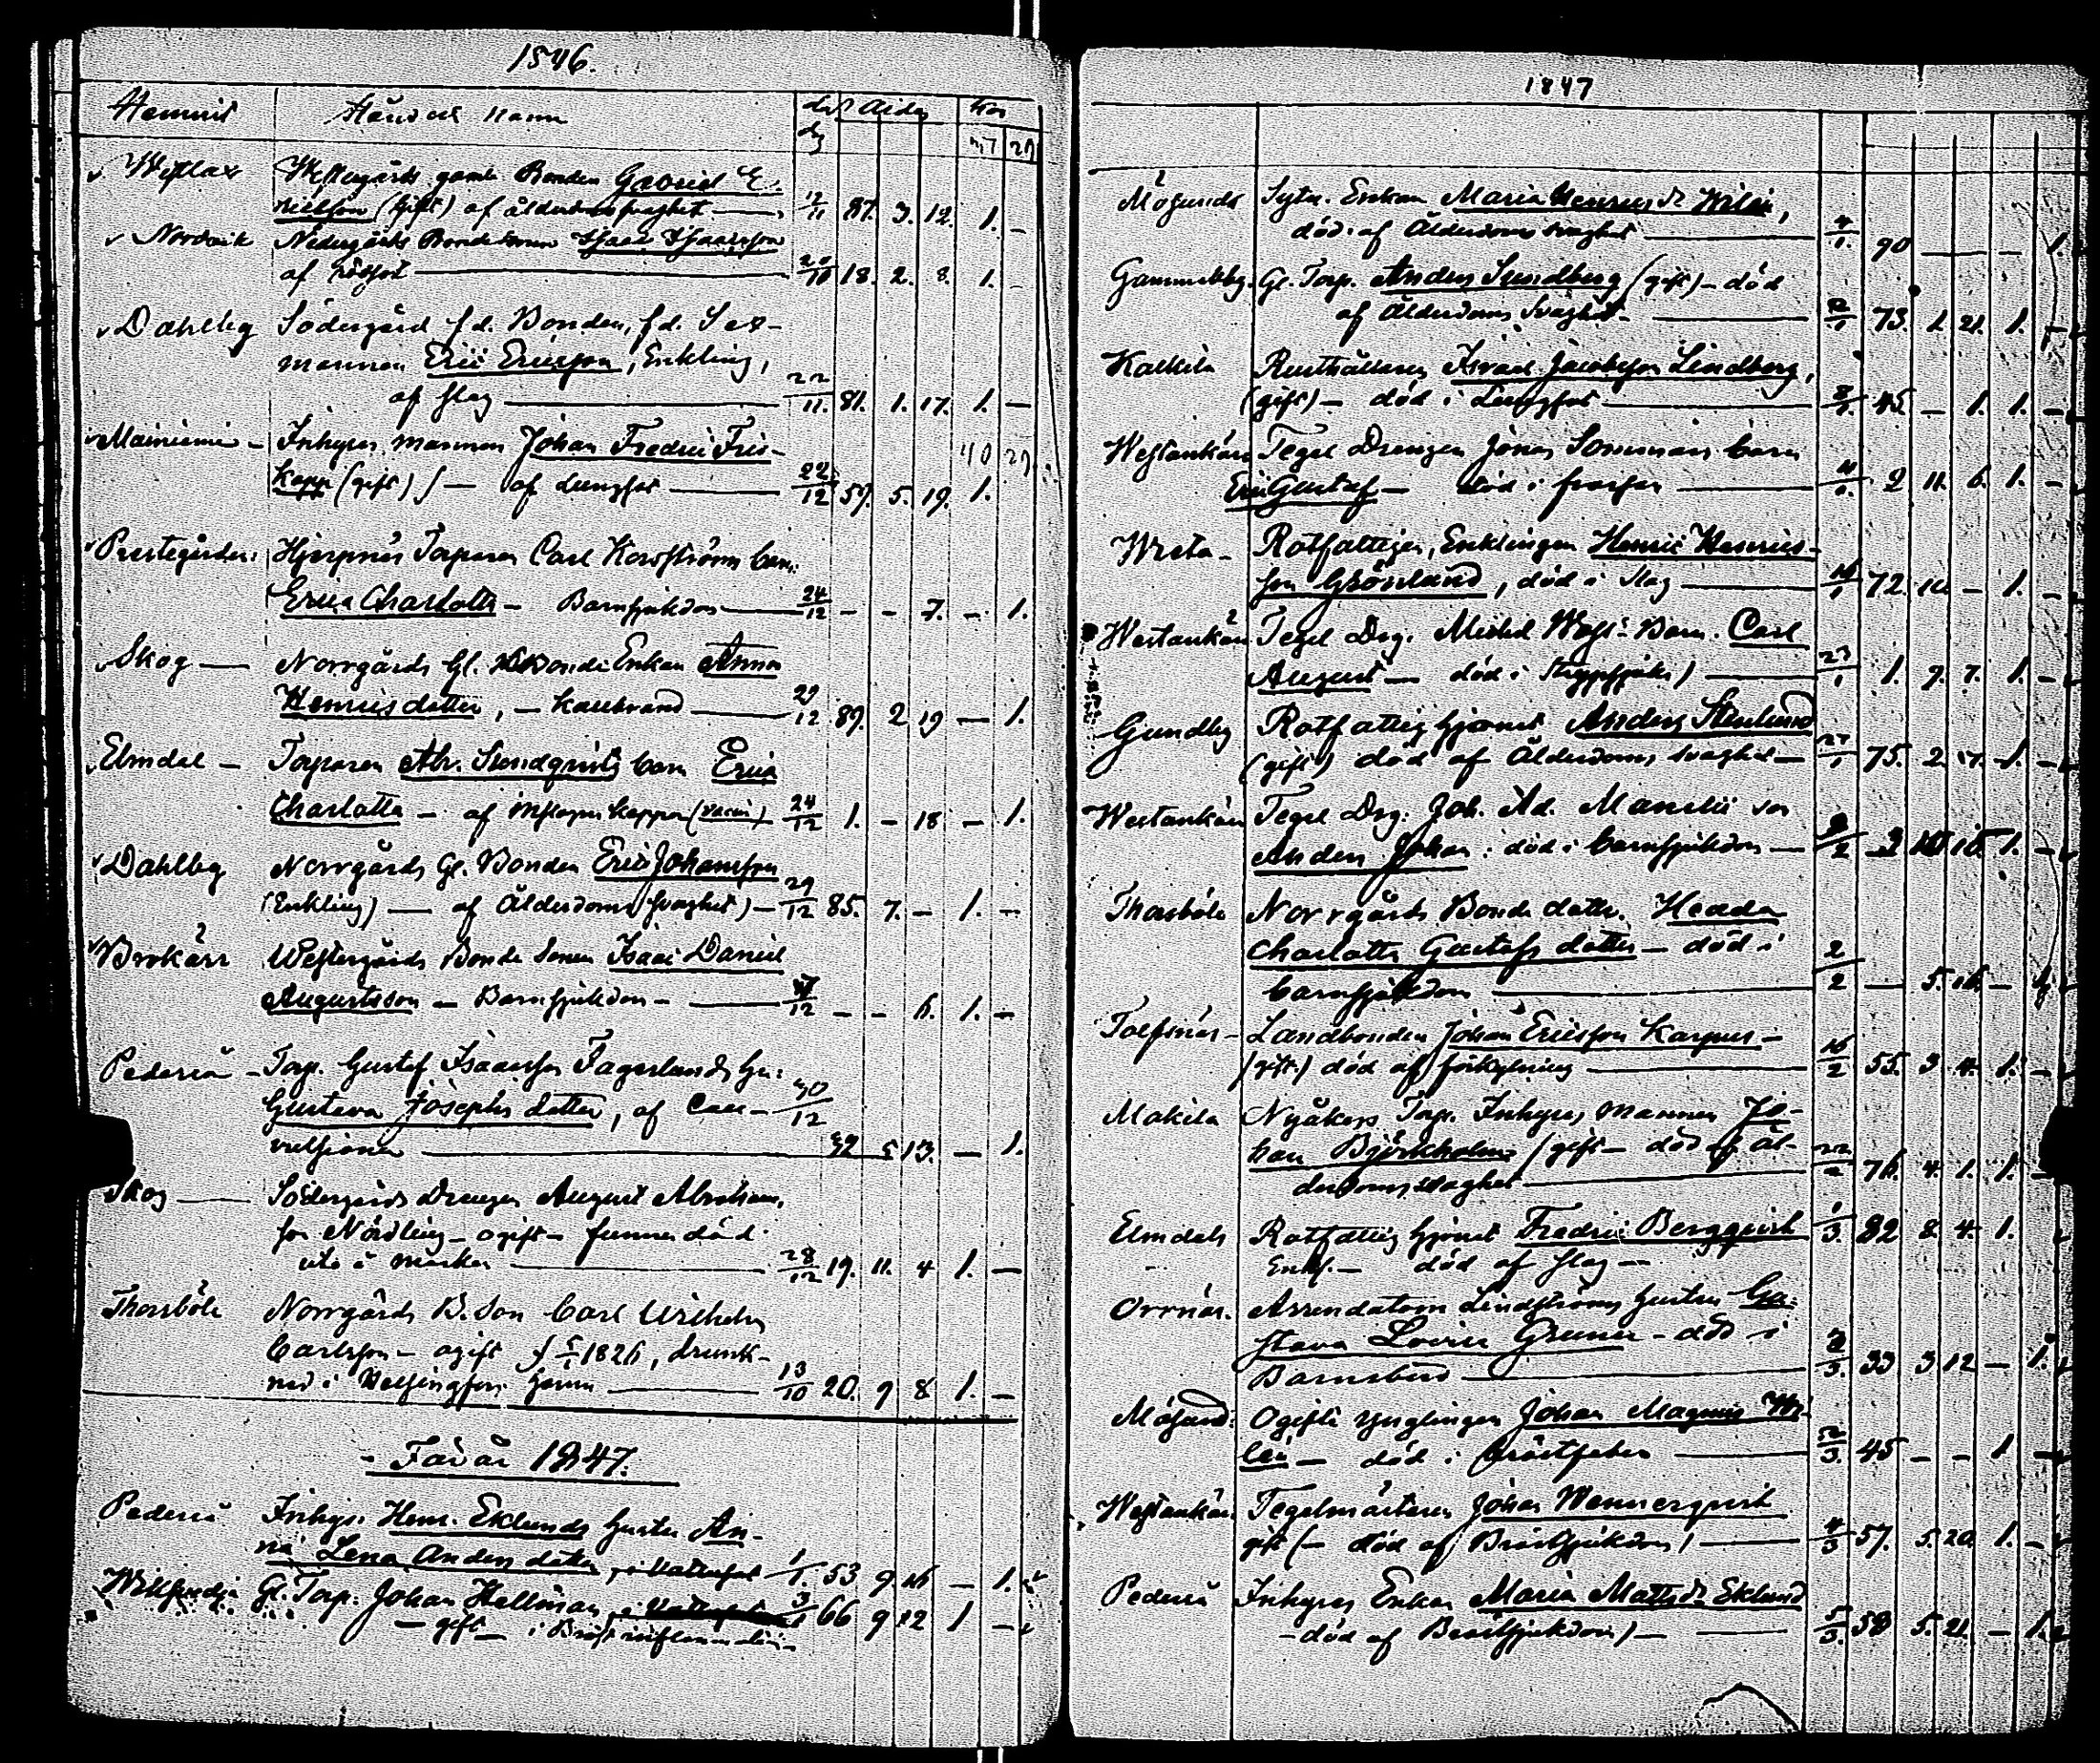 1846.
Hemvist Händelse Namn död Ålder Kön
dag M Q
Westlax Westergårds gamle Bonden Gabriel E
rielsson (gift) af ålderdomssvaghet — 12/11 87. 3. 12. 1. –
Norrvik Nedergårds Bonde Sonen Isaac Isaacsson
af rödsot — 20/10 18. 2. 8. 1. –
Dahlby Södergård f.d. Bonden, f.d. Sex-
mannen Eric Ericsson, Enkling,
af slag — 22/11. 81. 1. 17. 1. –
Mainiemi – Inhyses mannen Johan Fredric Fris- 40 29
Kopp (gift) – af Lungsot — 22/12 57. 5. 19. 1.
Prestegården: Hjerpnäs Torparen Carl Korsströms barn
Erica Charlotta – Barnsjukdom — 24/12 – – 7. – 1.
Skog — Norrgårds Gl. Bonde Enkan Anna
Henricsdotter, – kallbrand — 29/12 89. 2 19 – 1.
Elmdal – Torparen Abr. Lundqvists barn Erica
Charlotta – af koppor (vacci) 24/12 1. – 18 – 1.
Dahlby Norrgårds Gl. Bonden Eric Johansson
(Enkling) — af Ålderdoms svaghet) – 29/12 85. 7. – 1. –
Brokärr Westergårds Bonde Sonen Isaac Daniel
Augustsson – Barnsjukdom – /12 – – 6. 1. –
Pederså – Torp. Gustaf Isaacsson Fagerlunds hu:
Gustava Josephs dotter, af Con- 30/12
vulsioner — 32 5 13. – 1.
Skog — Södergårds Drengen August Abrahams
son Nordling – ogift – funnen död
ute å marken — 28/12 19. 11. 4 1. –
Thorsböle Norrgårds B. Son Carl Wilhelm
Carlsson – ogift f 5/1 1826, drunk-
nad i Helsingfors hamn — 13/10 20. 9 8 1. –
– För år 1847.
Pederså Inhys. Henr. Eklunds hustru An-
na Lena Anders dotter, i Vattusot 1/1 53 9 16 – 1.
Gl. Torp. Johan Hellman, 3/1 66 9 12 1 –
– gift – i Bröst inflammation –
1847
Mågsunds Sytn. Enkan Maria Henricsdr Wilén,
död af Ålderdoms svaghet — 4/1. 90 – – – 1.
Gammelby. Gl. Torp. Anders Sundberg (gift) – död
af Ålderdoms Svaghet – 2/1 73. 1. 21. 1. –
Kalkila Rusthållaren Israel Jacobsson Lindberg,
(gift) – död i Lungsot — 8/1. 45. – 1. 1. –
Westankärr Tegel Drengen Jonas Sommars barn
Eric Gustaf – död i frossan — 11/1. 2 11. 6. 1. –
Wreta – Rotfattigen, Enklingen Henric Henrics-
son Grönlund, död i Slag — 16/1 72. 10. – 1. –
Westankärr Tegel Drg. Michel Barn. Carl
August – död i — 23/1 1. 9. 7. 1. –
Gundby Rotfattig hjonet Anders Stenlund
(gift) död af Ålderdoms svaghet – 27/1 75. 2. 17. 1. –
Westankärr Tegel Drg. Joh. Ad. Mansélii son
Anders Johan: död i barnsjukdom – /2 3 10 10. 1. –
Thorsböle Norrgårds Bonde dottr. Hedda
Charlotta Gustafs dotter – död i
barnsjukdom — 2/2 – 5. 16. – 1
Tolfsnäs – Landbonden Johan Ericsson Karpus –
(gift) död af förkylning — 16/2 55. 3 4. 1. –
Makila Nyåkers Torp. Inhyses mannen Jo-
han Björkholm (gift – död af ål-
derdomssvaghet — 22/2 76. 4. 1. 1. –
Elmdals Rotfattig hjonet Fredric Bergqvist 1/3. 82 8. 4. 1.
Enkl. – död af slag –
Orrnäs. Arrendatorn Lindströms hustru Gu-
stava Lovisa Gruner – död i
Barnsbörd — 2/3. 33 3 12 – 1.
Mågsund: Ogifte ynglingen Johan Magnus Wi-
lén – död i bröstfeber — 2/3. 45 – – 1 –
Westankärr Tegelmästaren Johan Wennerqvist
gift (– död af Bröstsjukdom) — 4/3 57. 5. 20. 1. –
Pederså Inhyses Enkan Maria Mattsdr Eklund
– död af Bröstsjukdom) – 5/3. 58 5. 21. – 1.